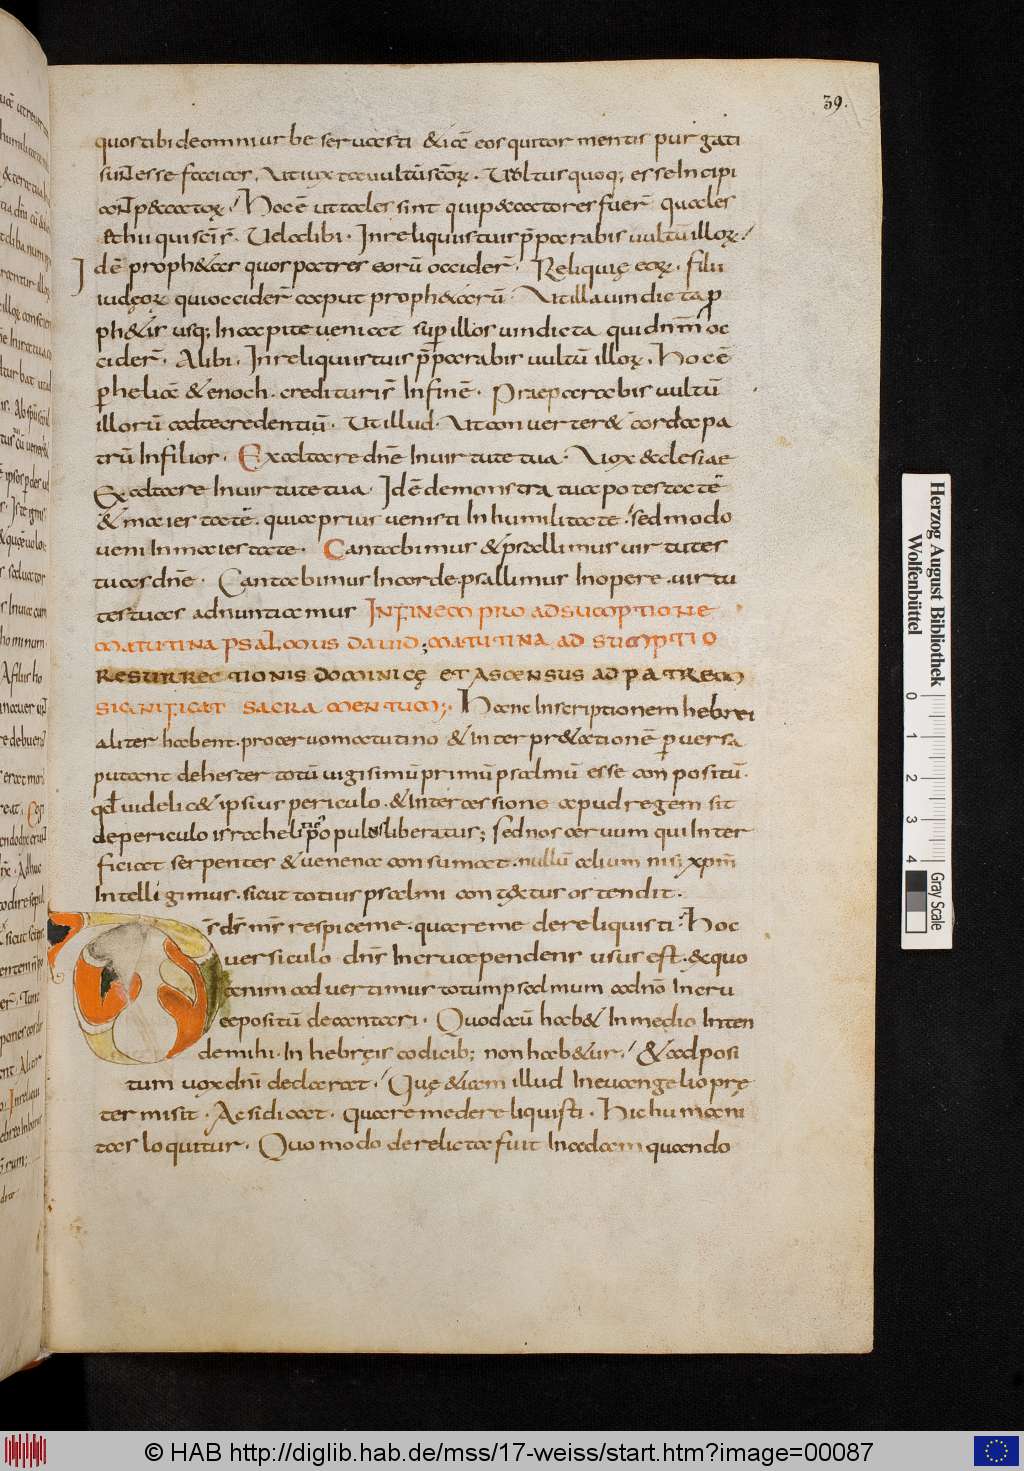 39.
quos tibi de omni urbe servasti & iā eos qui tormentis purgati
sunt esse facias, ut iuxta vultū sc̄oꝝ. Vultus quoq; esse incipi
ant p&catoꝝ / Hoc ē ut tales sint qui p&catores fuer̄ quales
Id ē proph&as quos patres eorū occider̄. Reliquię eoꝝ. filii
iudęoꝝ qui occider̄ caput proph&arū. Ut illa vindicta ꝓ
ph&is usq; in capite veniat sup illos vindicta qui dn̄m oc
cider̄. Alibi. In reliquiis tuis p̄parabis vultū illoꝝ. Hoc ē
ꝑ heliā & enoch. credituris in finē. Praeparabis vultū
illorū ad te credentiū. Ut illud. Ut converter& corda pa
trū in filios. Exaltare dn̄e in virtute tua. Vox &clesiae
Exaltare in virtute tua. Id ē demonstra tuā potestatē
& maiestatē. qui a prius venisti in humilitate. sed modo
veni in maiestate. Cantabimus & psallimus virtutes
tuas dn̄e. Cantabimus in corde. psallimus in opere. virtu
tes tuas adnuntiamus IN FINEM PRO ADSUMPTIONE
MATUTINA PSALMUS DAVID; MATUTINA AD SUMPTIO
RESURRECTIONIS DOMINICĘ ET ASCENSUS AD PATREM
SIGNIFICAT SACRAMENTUM; Hanc inscriptionem hebrei
aliter habent. pro cervo matutino & interpr&ationē ꝑversa
putant de hester totū vigisimū primū psalmū esse conpositū.
qd videlic& ipsius periculo. & intercessione apud regem sit
de periculo israheliticꝰ populus liberatus; sed nos cervum qui inter
ficiat serpentes & venena consumat. nullū alium nisi xpm̄
intelligimus. sicut totius psalmi contextus ostendit.
D̄s ds̄ ms̄ respice me. quare me dereliquisti. Hoc
versiculo dn̄s in cruce pendens usus est. & quo
anim advertimus totum psalmum a dn̄o in cru
ce positū decantari. Quod aū hab& in medio inten
de mihi. in hebręis codicib; non hab&ur / & adposi
tum vox dn̄i declarat / Quę &iam illud in evangelio prę
termisit. Ac si dicat. quare me dereliquisti. Hic humani
tas loquitur. Quomodo derelicta fuit in ea dam quando
Herzog August Bibliothek
Wolfenbüttel
0 1 2 3 4
Gray Scale
© HAB http://diglib.hab.de/mss/17-weiss/start.htm?image=00087